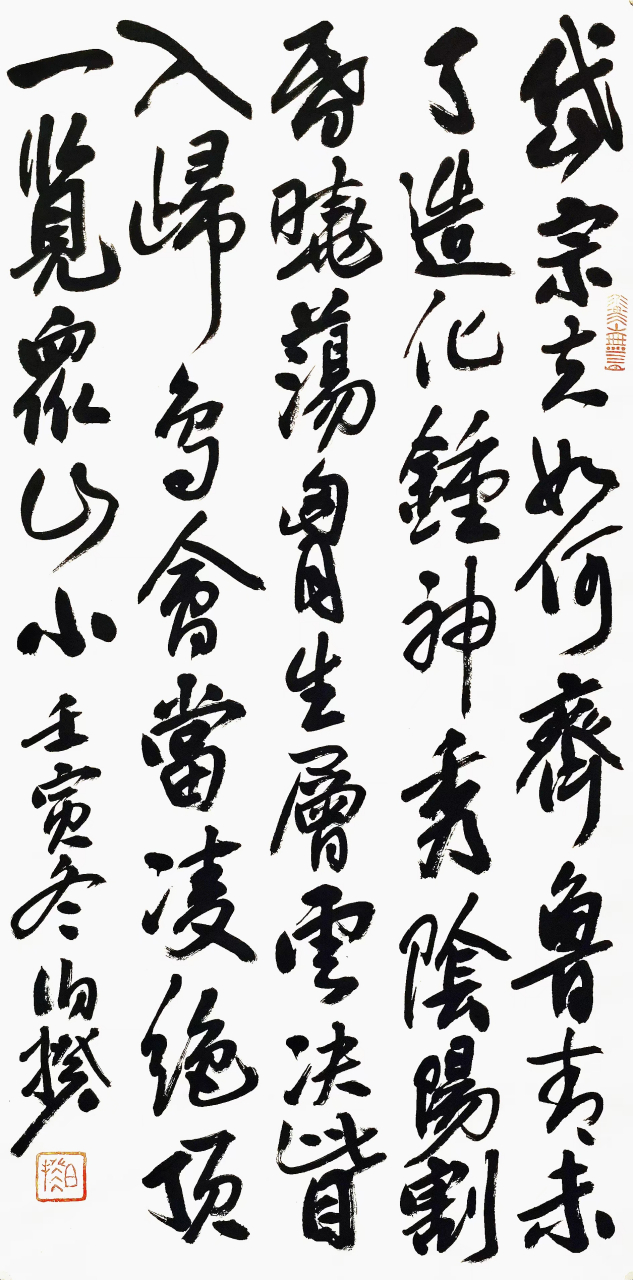 岱宗夫如何齊魯青未
了造化鍾神秀陰陽割
昏曉蕩胷生層雲决眥
入歸鳥會當凌絶頂
一覽衆山小壬寅冬伯揆